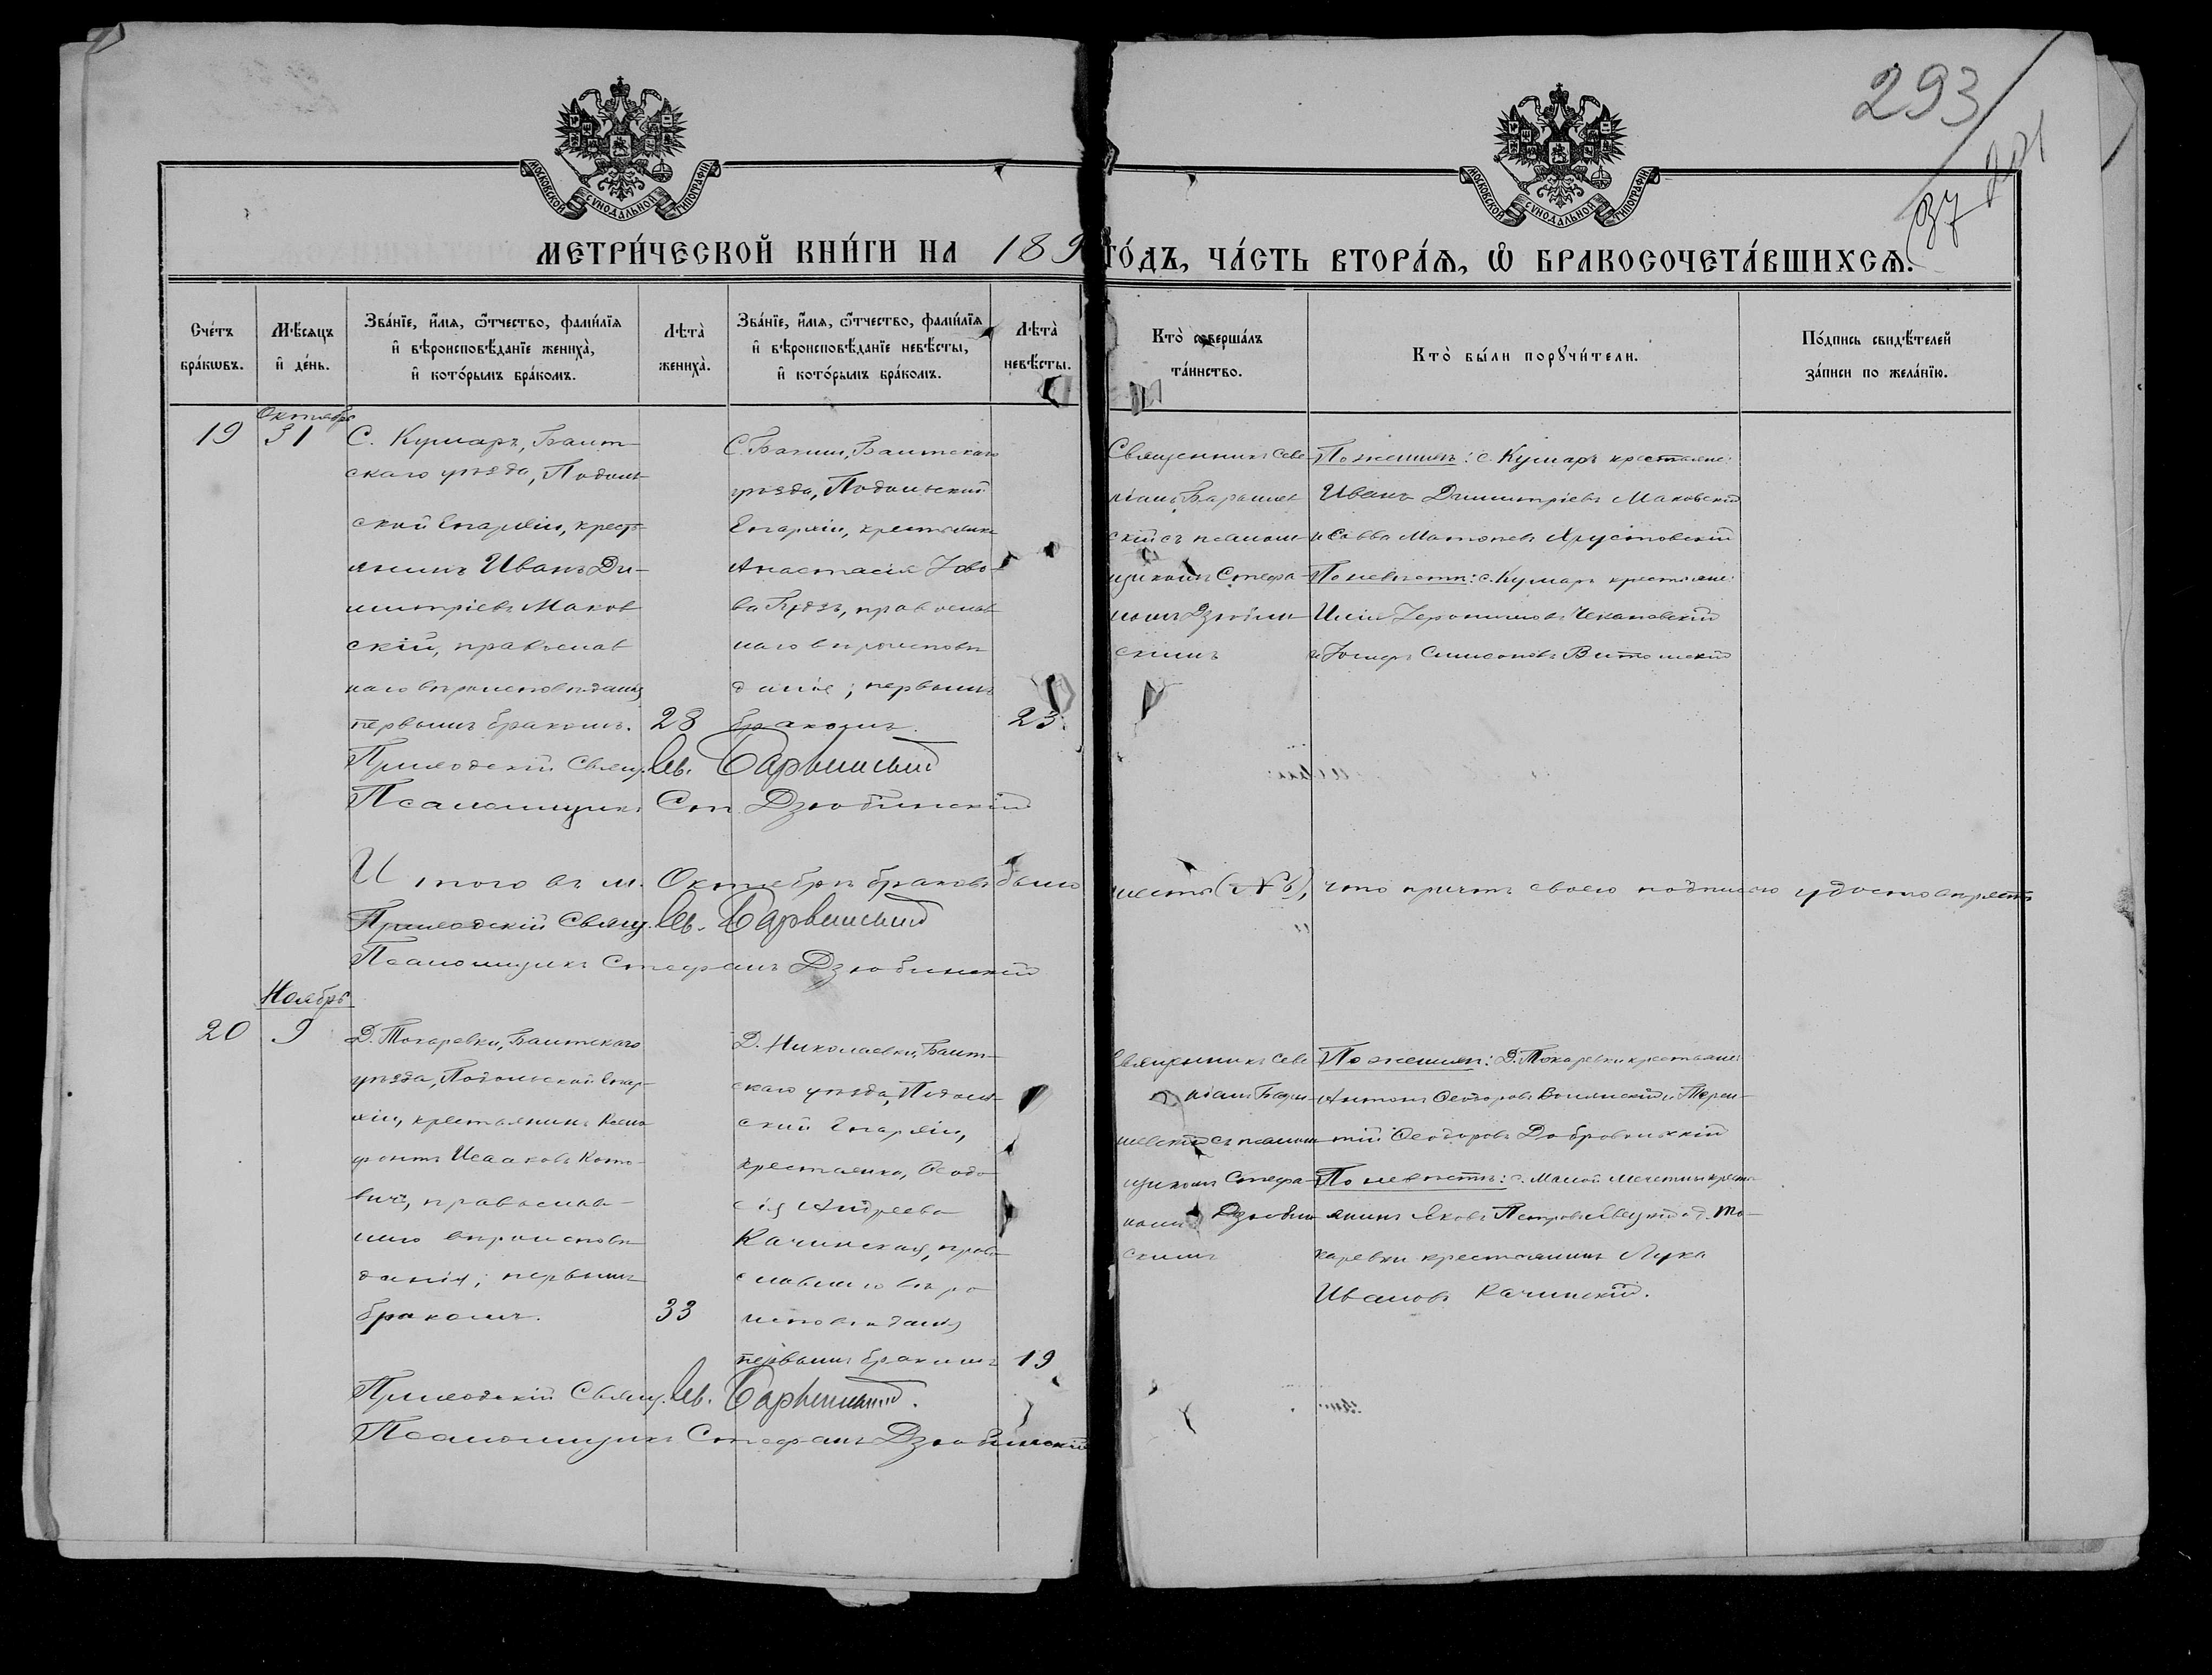 293
37
МОСКОВСКОЙ СѴНОДАЛЬНОЙ ТИПОГРАФІИ
МОСКОВСКОЙ СѴНОДАЛЬНОЙ ТИПОГРАФІИ
МЕТРИ́ЧЕСКОЙ КНИ́ГИ НА 189 ГО́ДЪ, ЧА́СТЬ ВТОРА́Ѧ, Ѽ БРАКОСОЧЕТА́ВШИХСѦ.
Сче́тъ
бра́кѡвъ.
Мѣ́сяцъ
и҆ де́нь.
Зва́нїе, и҆́мѧ, ѻ҆́тчество, фами́лїѧ
и҆ вѣроисповѣ́данїе жениха̀,
и҆ кото́рымъ бра́комъ.
Лѣта̀
жениха̀.
Зва́нїе, и҆́мѧ, ѻ҆́тчество, фами́лїѧ
и҆ вѣроисповѣ́данїе невѣ́сты,
и҆ кото́рымъ бра́комъ.
Лѣта̀
невѣ́сты.
Кто̀ соверша́лъ
та́инство.
Кто̀ бы́ли порꙋчи́тели.
По́дпись свидѣ́телей
за́писи по жела́нїю.
Октябрь
19
31
С. Кумаръ, Балт-
скаго уѣзда, Подоль-
ской Епархіи, кресть-
янинъ Иванъ Ди-
митріевъ Маков-
скій, православ-
наго вѣроисповѣданія
первымъ бракомъ.
28
Балтскаго
уѣзда, Подольской
Епархіи, крестьянка
Анастасія
православ-
наго вѣроисповѣ-
данія; первымъ
бракомъ.
23.
Священникъ Севе-
ріанъ
скій съ псалом-
щикомъ Стефа-
номъ Дзюбин-
скимъ
По женихѣ: с. Кумаръ крестьяне:
Иванъ Димитріевъ Маковскій
и Савва Хрустовскій
По невѣстѣ: с. Кумаръ крестьяне:
Илія Іеронимовъ Чекановскій
и Іосифъ Симеоновъ
Приходскій Свящ. Св.
Псаломщикъ Ст. Дзюбинскій
Итого въ м. Октябрѣ браковъ было шесть (№ 6), что причтъ своею подписью удостовѣряетъ
Приходскій Свящ. Св.
Псаломщикъ Стефанъ Дзюбинскій
Ноябрь
20
9
Д. Токаревки, Балтскаго
уѣзда, Подольской Епар-
хіи, крестьянинъ Ксено-
фонтъ Исааковъ Кото-
вичъ, православ-
наго вѣроисповѣ-
данія; первымъ
бракомъ.
33
Д. Николаевки, Балт-
скаго уѣзда, Подоль-
ской Епархіи,
крестьянка, Ѳеодо-
сія Андреева
Качинская, право-
славнаго вѣро-
исповѣданія
первымъ бракомъ
19
Священникъ Севе-
ріанъ
съ псалом-
щикомъ Стефа-
номъ Дзюбин-
скимъ
По женихѣ: Д. Токаревки крестьяне:
Антонъ Ѳеодоровъ Волянскій и Терен-
тій Ѳеодоровъ Добровольскій
По невѣстѣ: с. Малой Мечетны кресть-
янинъ Яковъ Петровъ и д. То-
каревки крестьянинъ Лука
Ивановъ Качинскій.
Приходскій Свящ. Св.
Псаломщикъ Стефанъ Дзюбинскій